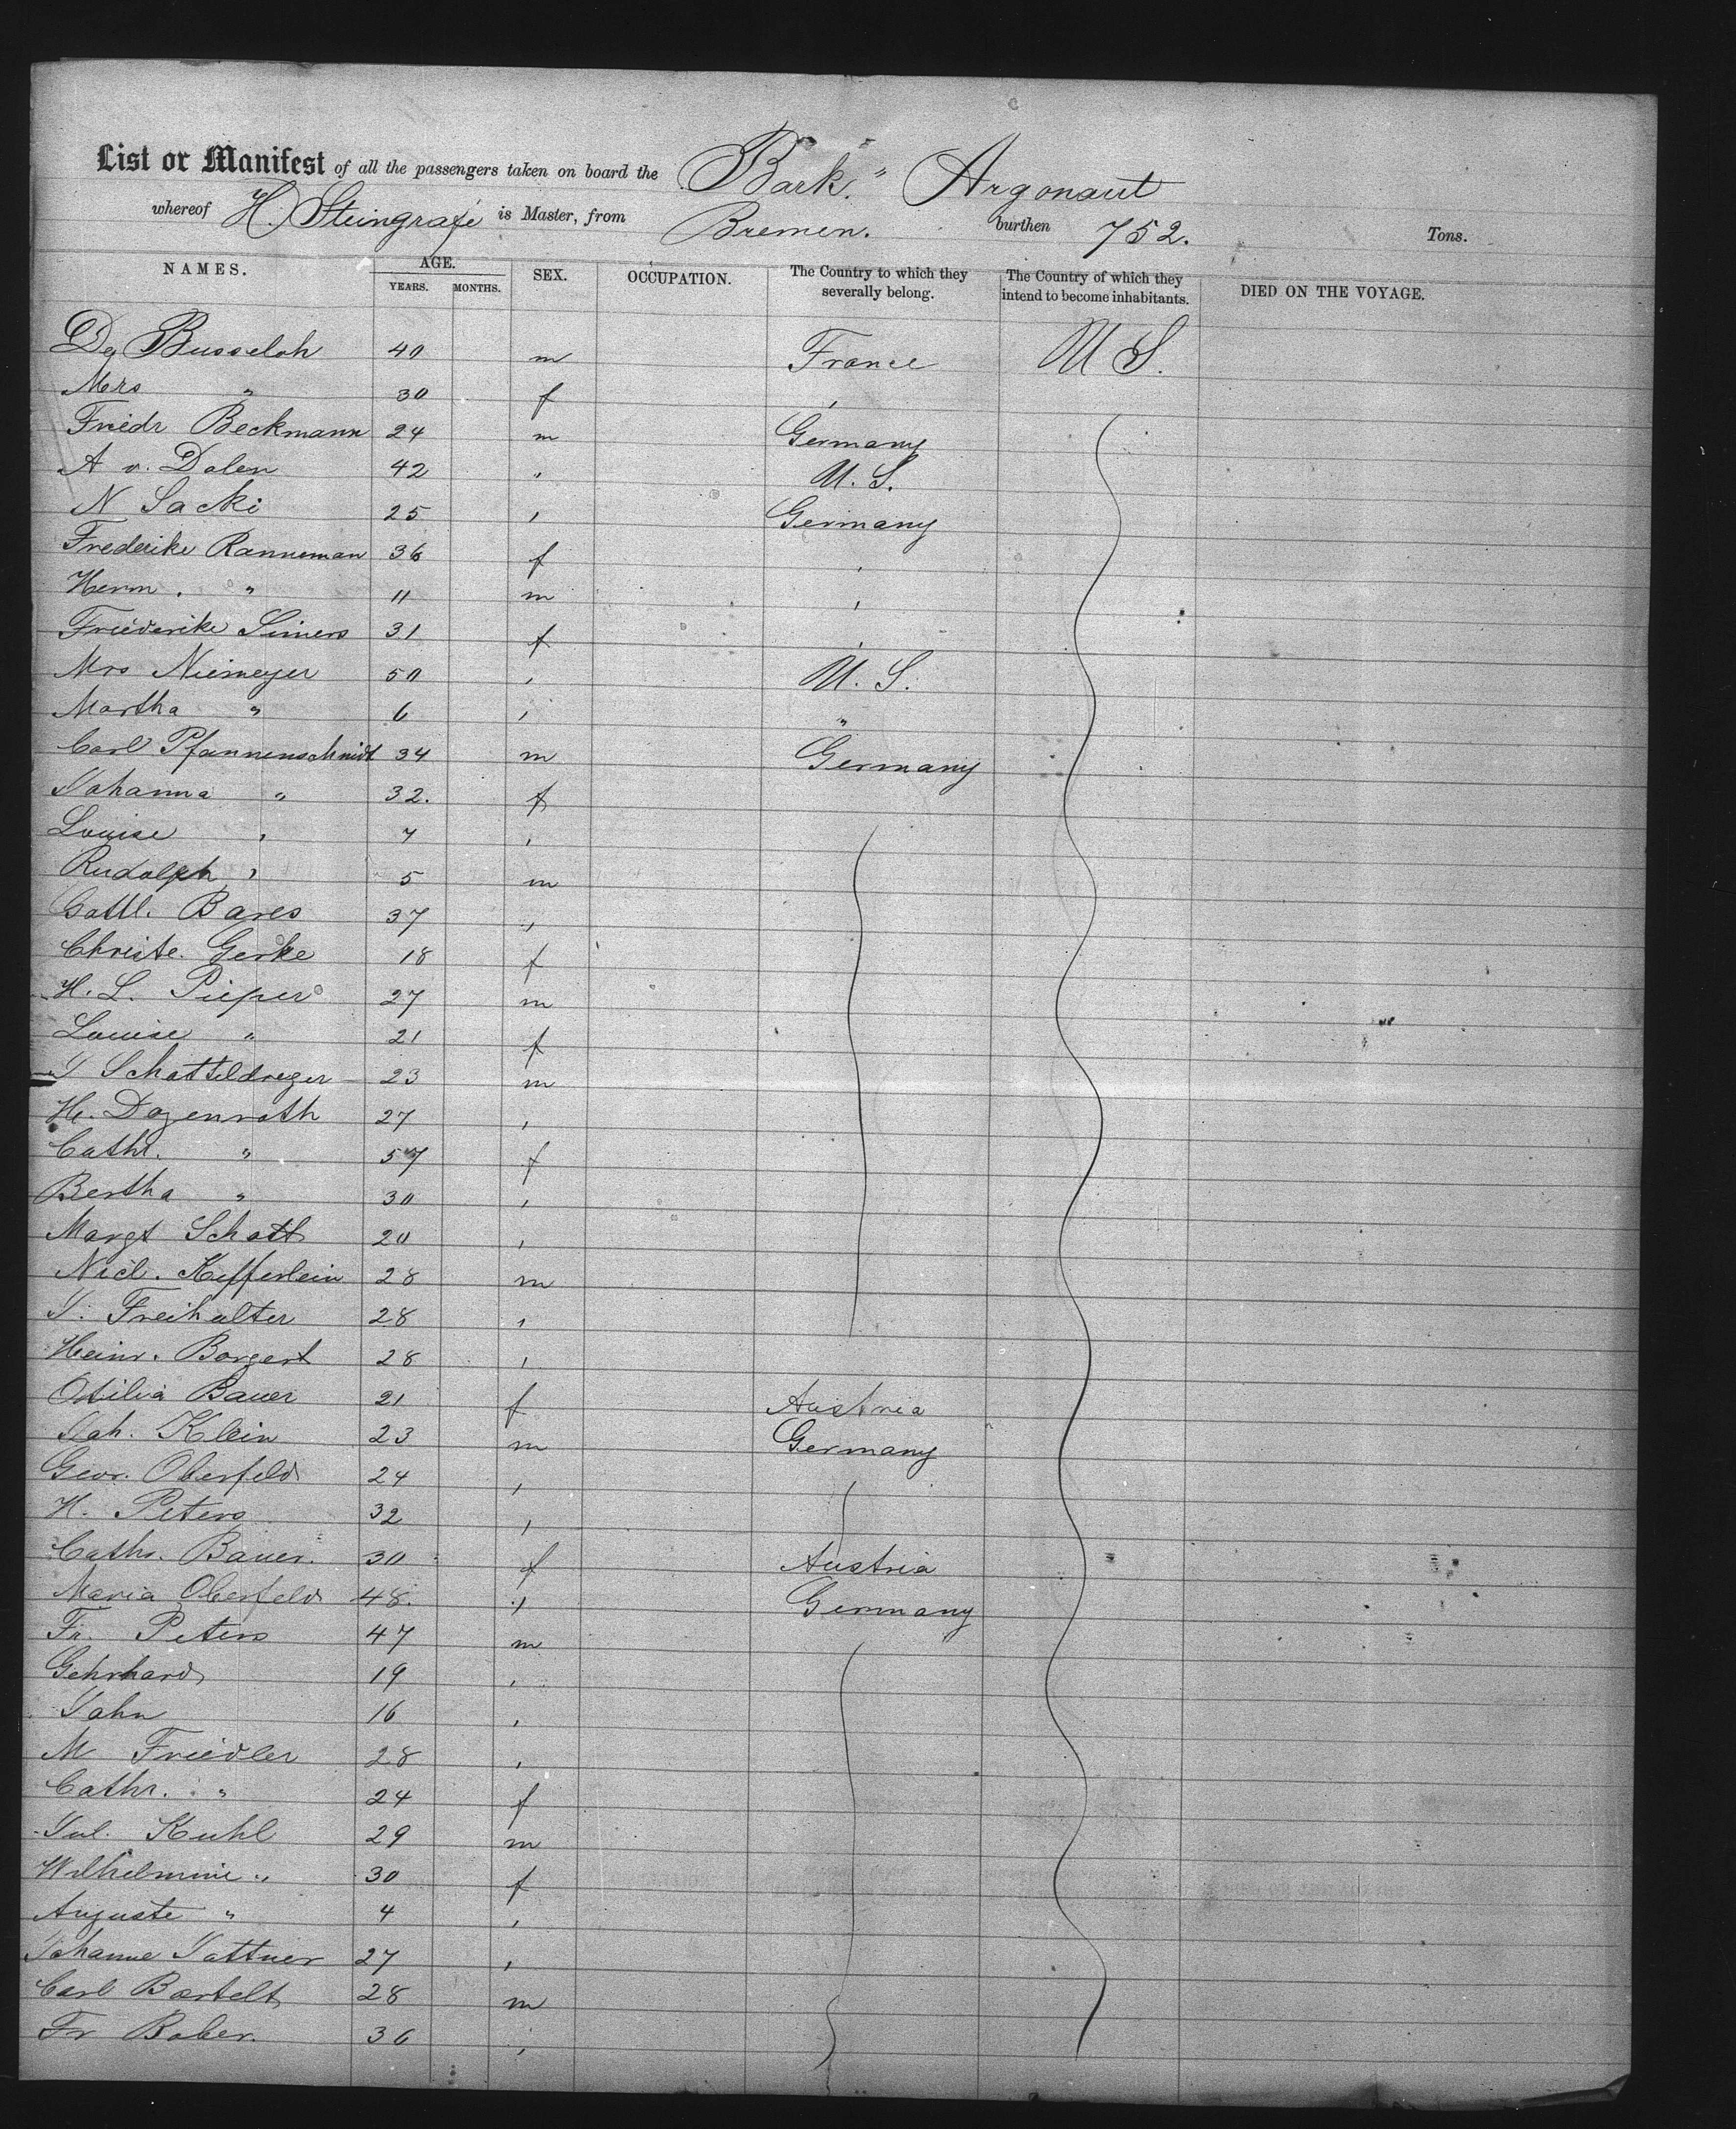 List or Manifest of all the passengers taken on board the Bark "Argonaut
whereof H. Steingrafe is Master, from Bremen. burthen 752. Tons.
NAMES. AGE. SEX. OCCUPATION. The Country to which they severally belong. The Country of which they intend to become inhabitants. DIED ON THE VOYAGE.
YEARS. MONTHS.
Busseloh 40 m France U S.
Mrs " 30 f ,
Friedr Beckmann 24 m Germany
A v. Dolen 42 " U. S.
N Sacki 25 , Germany
Frederike Ranneman 36 f ,
Herm. " 11 m ,
Friederike Simers 31 f ,
Mrs Niemeyer 50 , U. S.
Martha " 6 , "
Carl Pfannenschmidt 34 m Germany
Johanna " 32. f
Louise , 7 ,
Rudolph , 5 m
Gottl. Bares 37 ,
Christe. Gerke 18 f
H. L. Pieper 27 m
Louise " 21 f
J Schatteldreger 23 m
H. Dozenroth 27 ,
Cathr. " 57 f
Bertha " 30 ,
Margt Schott 20 ,
Nicl. Kefferlein 28 m
J. Freihalter 28 ,
Heinr. Borgert 28 ,
Otilia Bauer 21 f Austria
Joh. Klein 23 m Germany
Geor. Oberfeld 24 ,
H. Peters 32 ,
Cathr. Bauer. 30 f Austria
Maria Oberfeld 48. , Germany
Fr. Peters 47 m
Gehrhard 19 ,
John 16 ,
M Friedler 28 ,
Cathr. " 24 f
Jul. Kuhl 29 m
Wilhelmine " 30 f
Auguste " 4 ,
Johanne Jattner 27 ,
Carl Bartelt 28 m
Fr Bober. 36 ,